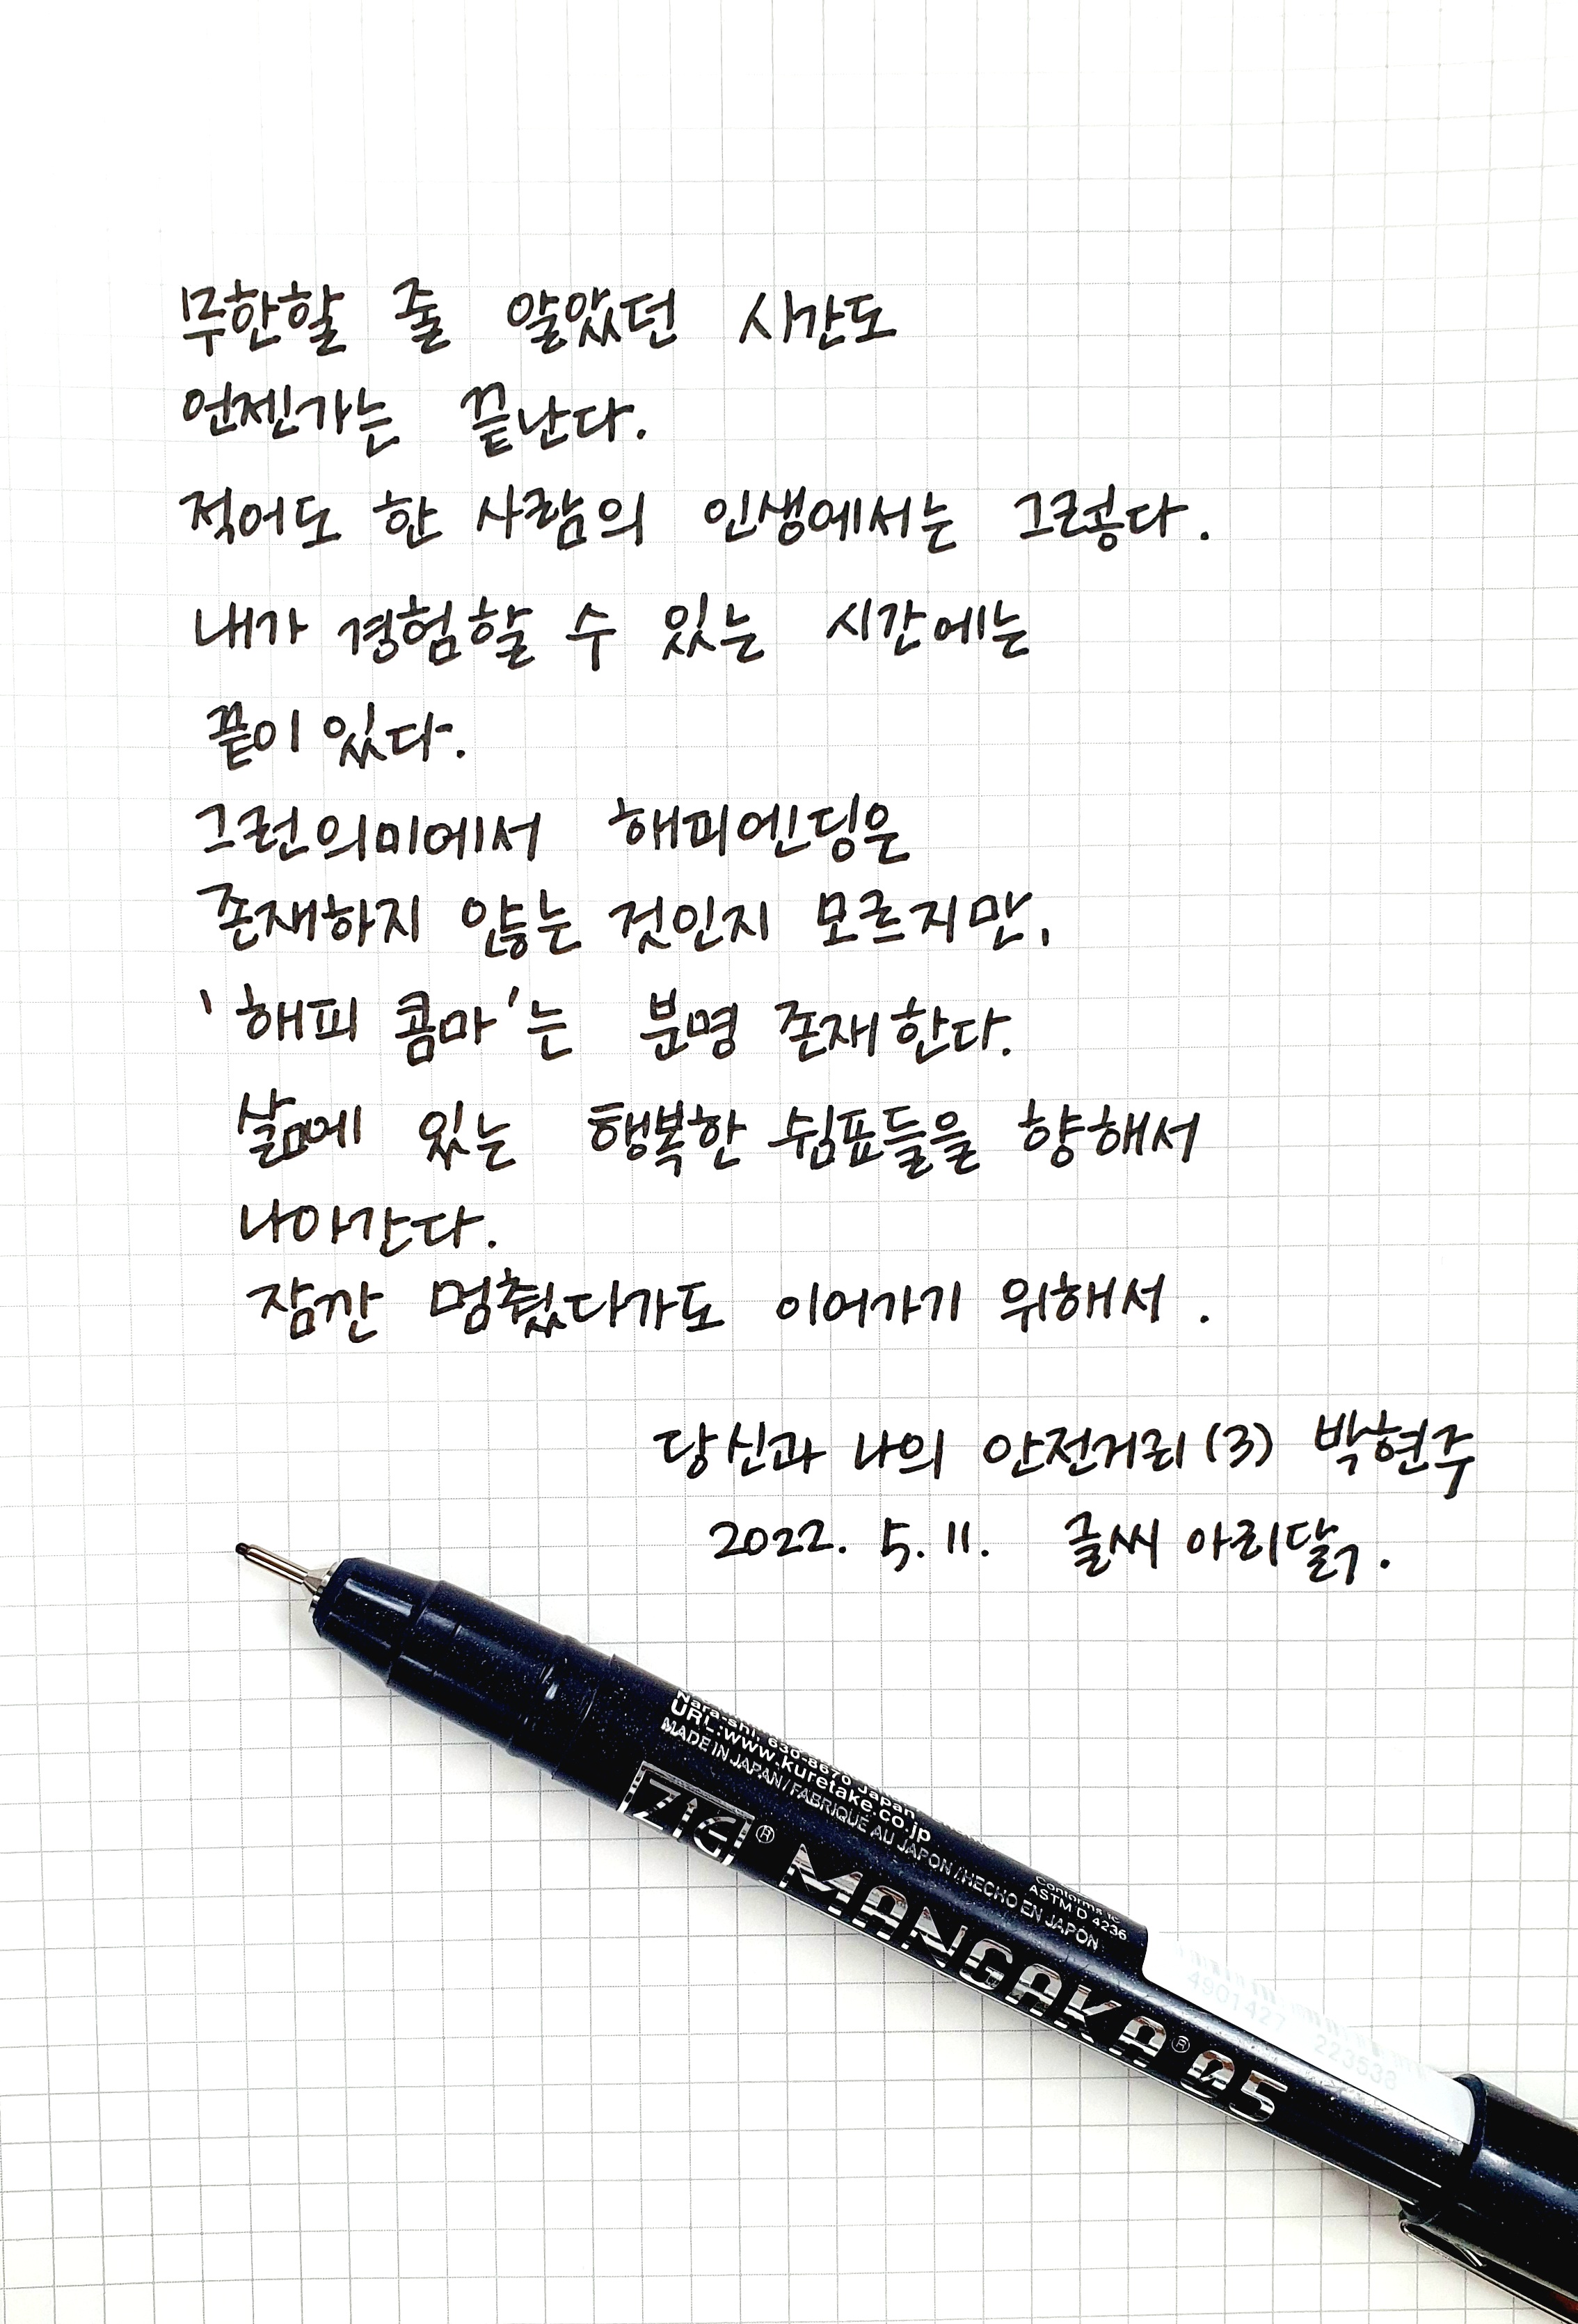 무한할 줄 알았던 시간도
언젠가는 끝난다.
적어도 한 사람의 인생에서는 그렇다.
내가 경험할 수 있는 시간에는
끝이 있다.
그런의미에서 해피엔딩은
존재하지 않는 것인지 모르지만,
'해피 콤마'는 분명 존재한다.
삶에 있는 행복한 쉼표들을 향해서
나아간다.
잠깐 멈췄다가도 이어가기 위해서.
당신과 나의 안전거리(3) 박현주
2022. 5. 11. 글씨 아리닭.
Nara-shi, 630-8670 Japan
URL:www.kuretake.co.jp
MADE IN JAPAN / FABRIQUÉ AU JAPON / HECHO EN JAPÓN
Conforms to
ASTM D 4236
ZIG® MANGAKA® 05
4901427 223538